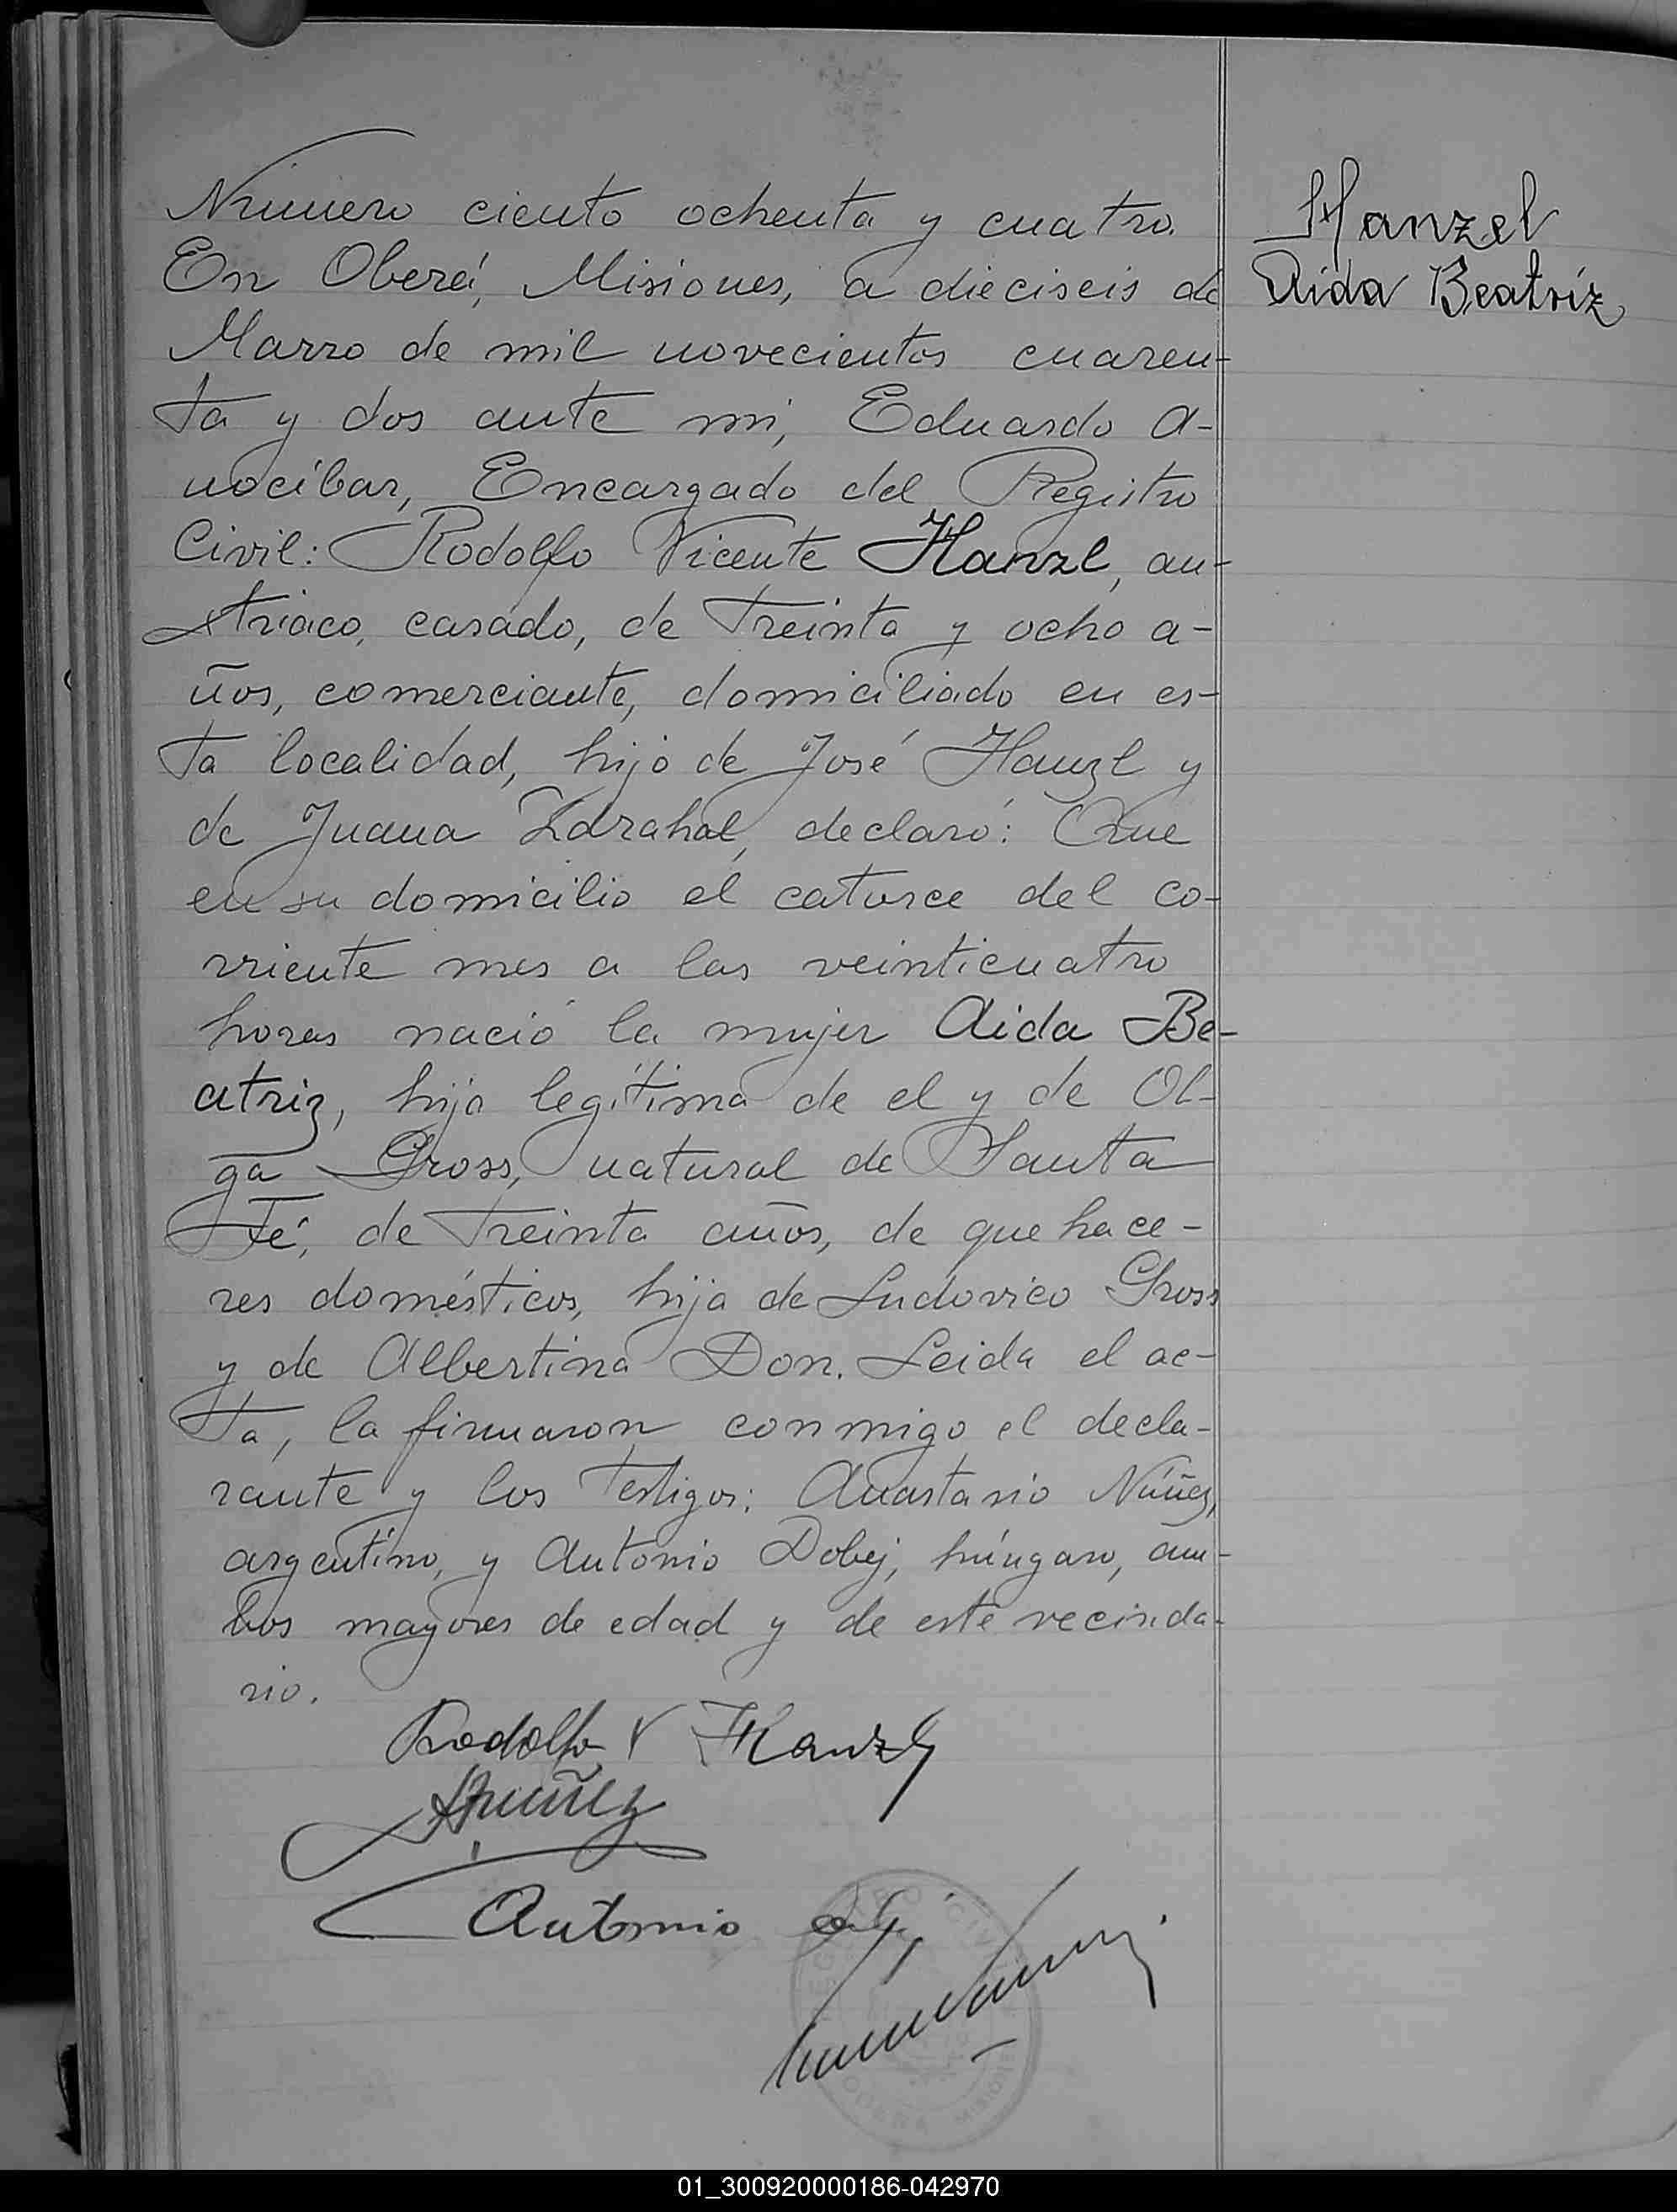 Número ciento ochenta y cuatro.
En Oberá, Misiones, a dieciseis de
Marzo de mil novecientos cuaren-
ta y dos ante mi, Eduardo A-
nocíbar, Encargado del Registro
Civil: Rodolfo Vicente Hanzl, au-
striaco, casado, de treinta y ocho a-
ños, comerciante, domiciliado en es-
ta localidad, hijo de José Hanzl y
de Juana Zdrahal, declaró: Que
en su domicilio el catorce del co-
rriente mes a las veinticuatro
horas nació la mujer Aida Be-
atriz, hija legítima de el y de Ol-
ga Gross, natural de Santa
Fé, de treinta años, de quehace-
res domésticos, hija de Ludovico Gross
y de Albertina Don. Leida el ac-
ta, la firmaron conmigo el decla-
rante y los testigos: Anastasio Núñez,
argentino, y Antonio Dobej, húngaro, am-
bos mayores de edad y de este vecinda-
rio.
Hanzel
Aida Beatríz
Rodolfo V Hanzl
ANuñez
Antonio
01_300920000186-042970